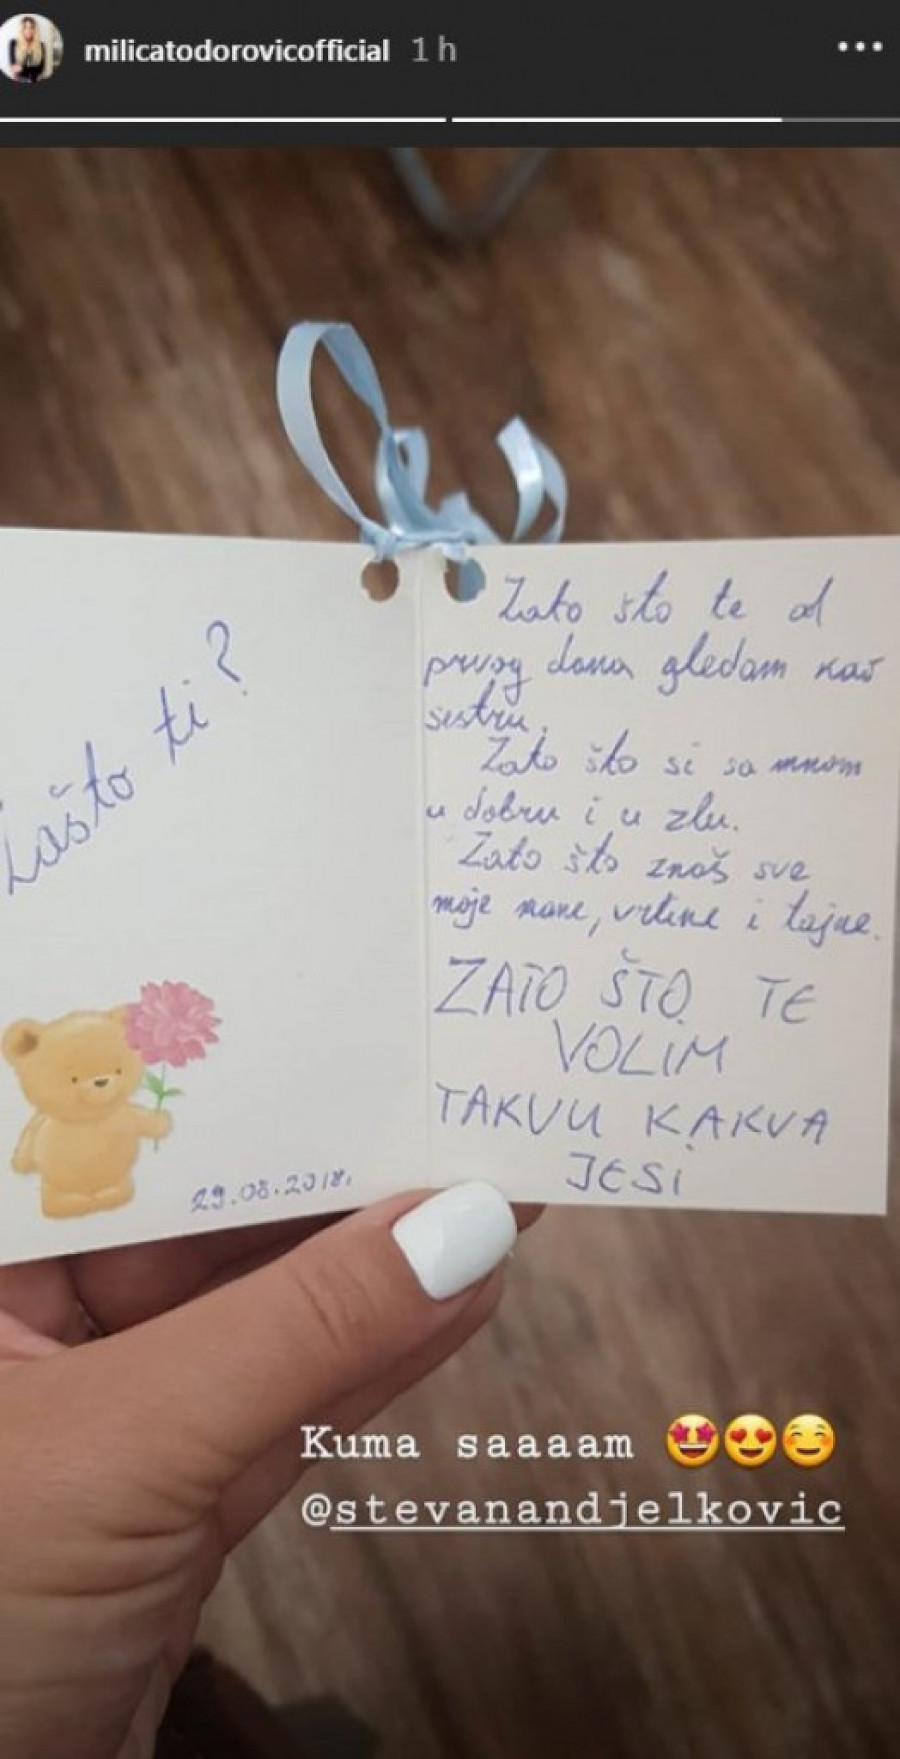 milicatodorovicofficial 1 h
Zašto ti?
29.08.2018.
Zato što te od
prvog dana gledam kao
sestru.
Zato što si sa mnom
u dobru i u zlu.
Zato što znaš sve
moje mane, vrline i tajne.
ZATO ŠTO TE
VOLIM
TAKVU KAKVA
JESI
Kuma saaaam 🤩😍😊
@stevanandjelkovic